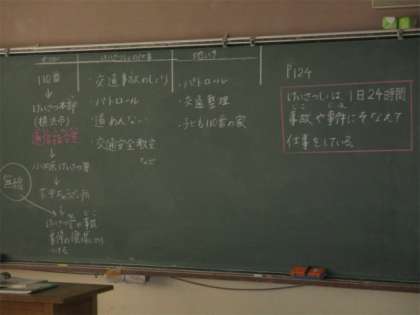 110番
けいさつ本部
(横浜市)
通信指令室
小田原けいさつ署
無線
けいさつしょの仕事
・交通事故のしょり
・パトロール
・道あんない
・交通安全教室
など
地いき
・パトロール
・交通整理
・子ども110番の家
P124
けいさつしょは、1日24時間
事故や事件にそなえて
仕事をしている